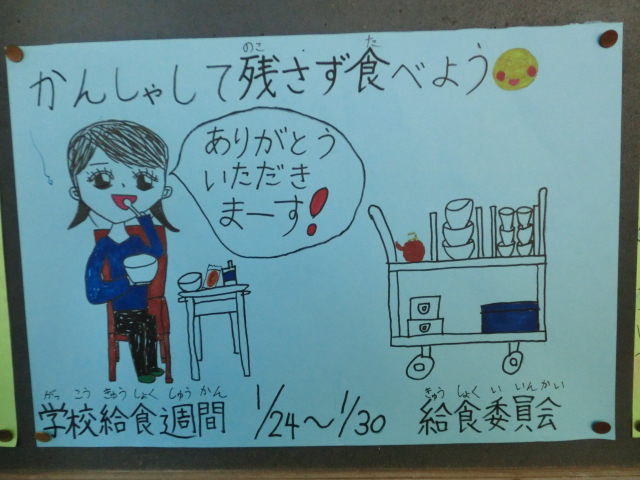 かんしゃして残さず食べよう
のこ
た
ありがとう
いただき
まーす!
がっこうきゅうしょくしゅうかん
学校給食週間 1/24〜1/30
きゅうしょくいいんかい
給食委員会